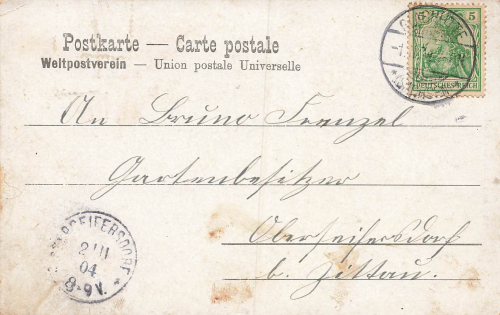 Postkarte — Carte postale
Weltpostverein — Union postale Universelle
5
DEUTSCHES REICH
An Bruno Frenzel
Gartenbesitzer
Oberseifersdorf
b. Zittau.
SEIFERSDORF
2 III
04
8-9V.